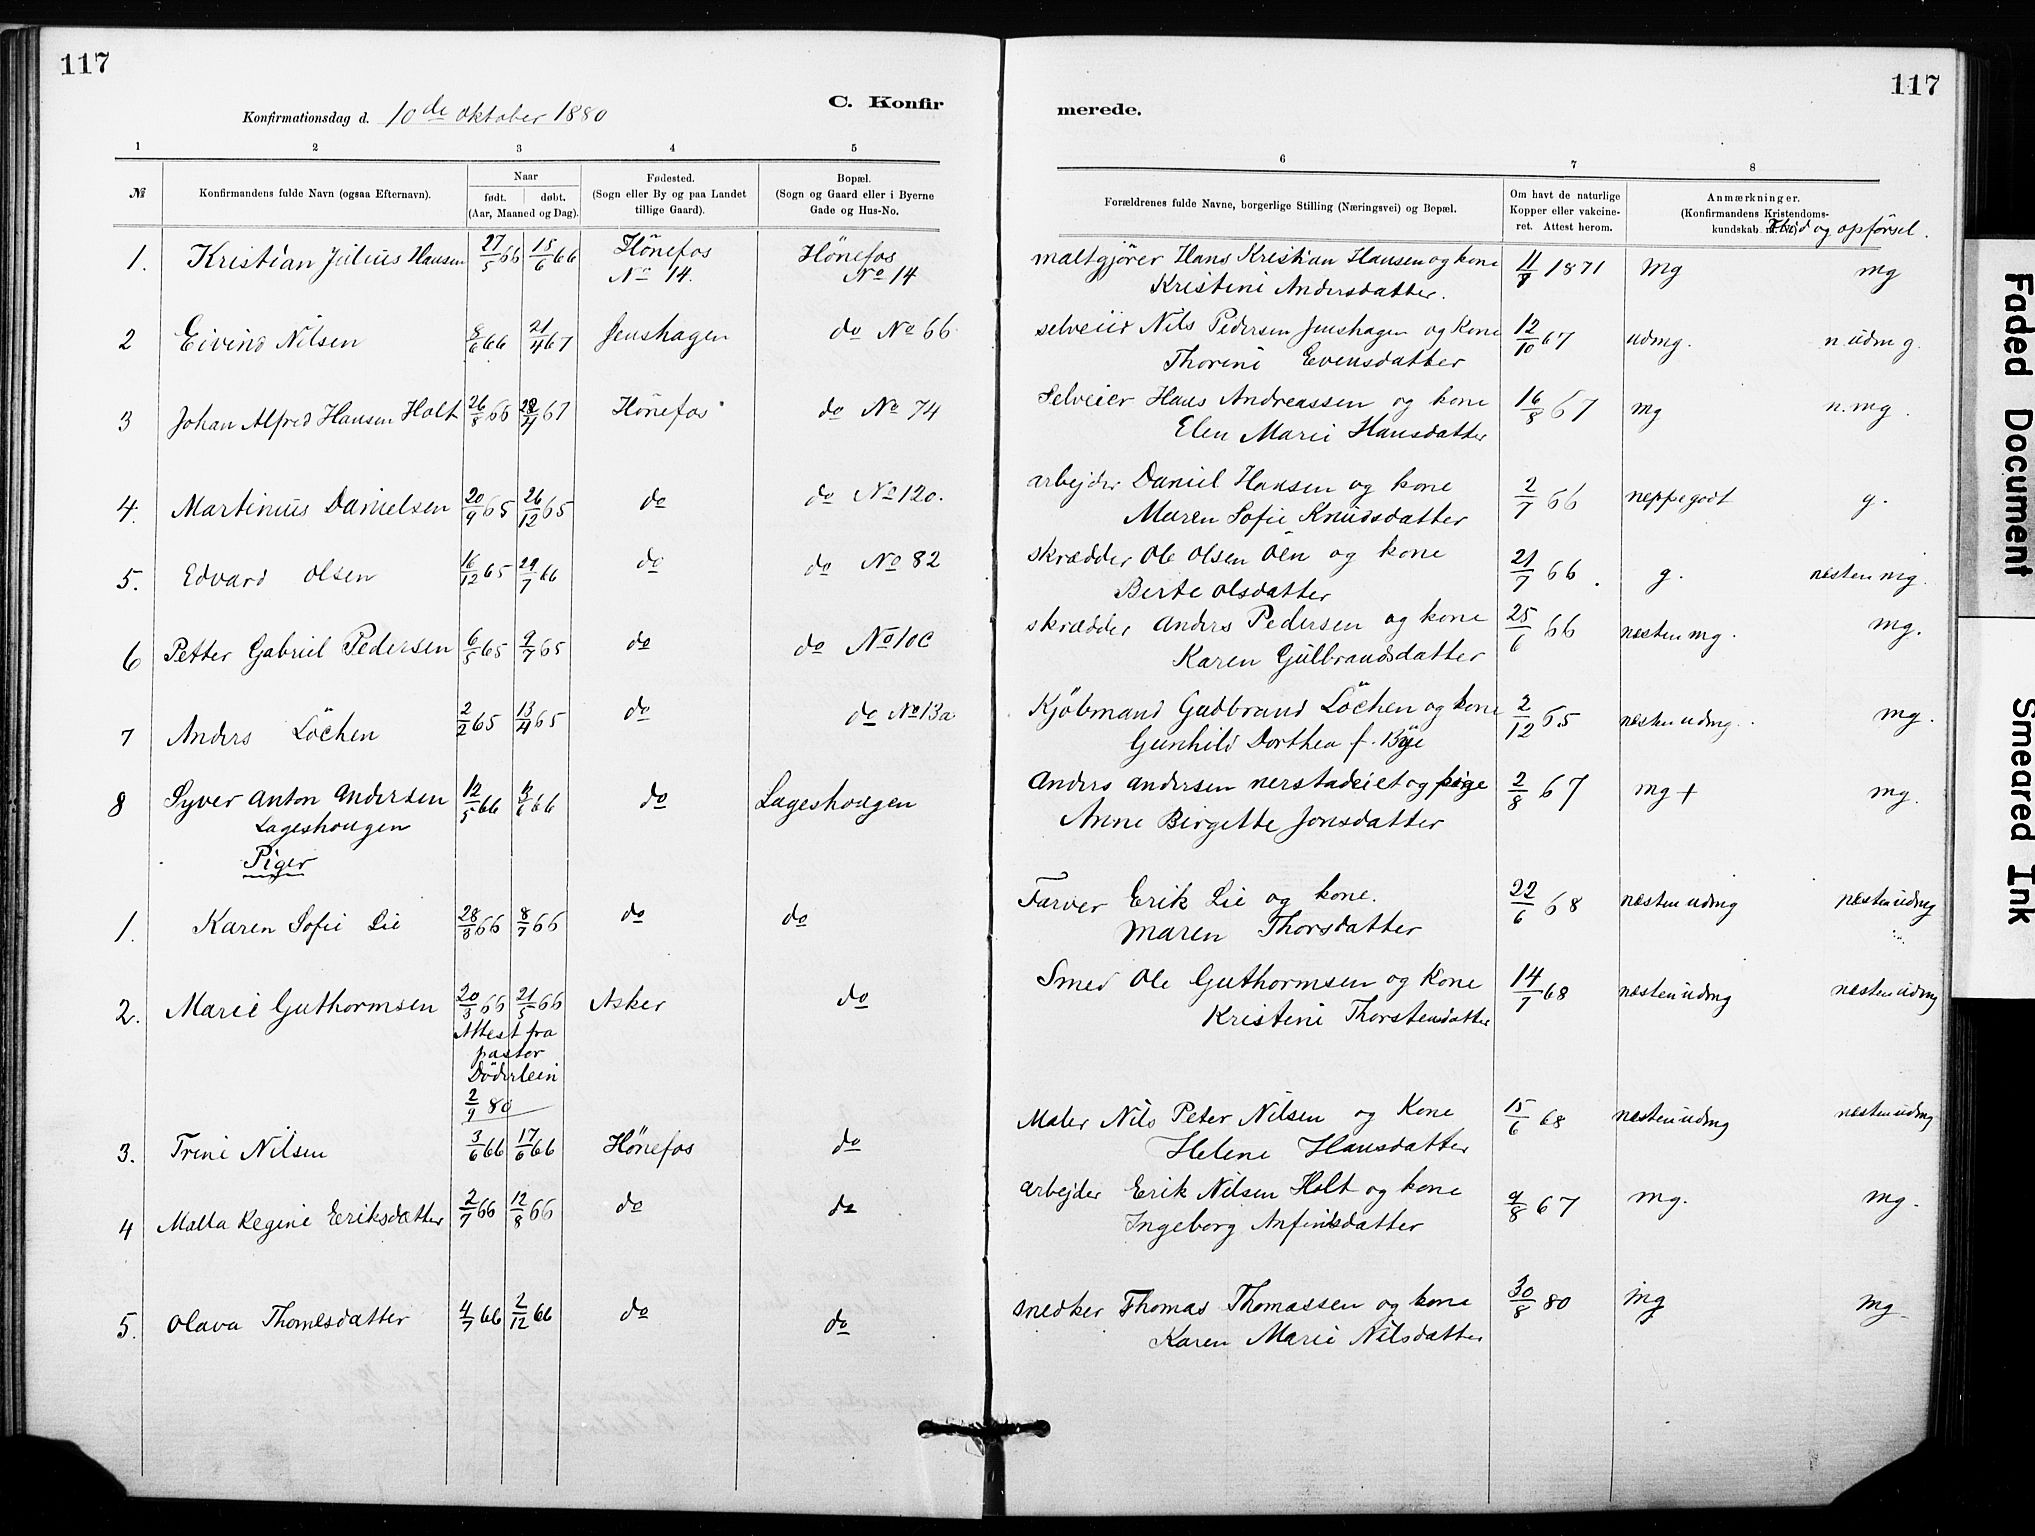 117
117
C. Konfir
merede.
Konfirmationsdag d. 10de oktober 1880
1 2 3 4 5 6 7 8
№ Konfirmandens fulde Navn (ogsaa Efternavn).
Naar
født. døbt.
(Aar, Maaned og Dag).
Fødested.
(Sogn eller By og paa Landet
tillige Gaard).
Bopæl.
(Sogn og Gaard eller i Byerne
Gade og Hus-No.
Forældrenes fulde Navne, borgerlige Stilling (Næringsvei) og Bopæl.
Om havt de naturlige
Kopper eller vakcine-
ret. Attest herom.
Anmærkninger.
(Konfirmandens Kristendoms-
kundskab m. v.)
Flid og opførsel.
1. Kristian Julius Hansen 27/5 66 15/6 66 Hönefos Hönefos maltgjører Hans Kristian Hansen og kone 11/9 1871 Mg mg
No 14. No 14 Kristine Andersdatter.
2 Eivind Nilsen 8/6 66 21/4 67 Jenshagen do No 66 selveier Nils Pedersen Jenshagen og Kone 12/10 67 udmg. n. udm g.
Thorine Evensdatter
3 Johan Alfred Hansen Holt 26/8 66 28/4 67 Hönefos do No 74 Selveier Hans Andreassen og kone 16/8 67 mg n. mg.
Elen Marie Hansdatter
4. Martinius Danielsen 20/9 65 26/12 65 do do No 120. arbejder Daniel Hansen og kone 2/7 66 neppe godt g.
Maren Sofie Knudsdatter
5. Edvard Olsen 16/12 65 29/7 66 do do No 82 skrædder Ole Olsen Öen og kone 21/7 66. g. nesten mg.
Berte Olsdatter
6 Petter Gabriel Pedersen 6/5 65 9/7 65 do do No 10c skrædder Anders Pedersen og kone 25/6 66 næsten mg. mg.
Karen Gulbrandsdatter
7 Anders Löchen 2/2 65 13/4 65 do do No 13a Kjöbmand Gudbrand Löchen og kone 2/12 65 næsten udmg. mg.
Gunhild Dorthea f. Bye
8 Syver Anton Andersen 12/5 66 3/6 66 do Lageshougen Anders Andersen nerstadeiet og pige 2/8 67 mg + mg.
Lageshougen Anne Birgette Jonsdatter
Piger
1. Karen Sofie Lie 28/3 66 8/7 66 do do Farver Erik Lie og kone. 22/6 68 næsten udmg næsten udmg
Maren Thorsdatter
2. Marie Guthormsen 20/3 66 21/5 66 Asker do Smed Ole Guthormsen og Kone 14/7 68 næsten udmg næsten udmg
Attest fra Kristine Thorstensdatter
pastor
Döderlein
2/9 80
3. Trine Nilsen 3/6 66 17/6 66 Hönefos do Maler Nils Peter Nilsen og Kone 15/6 68 næsten udmg næsten udmg
Helene Hansdatter
4 Malla Regine Eriksdatter 2/7 66 12/8 66 do do arbejder Erik Nilsen Holt og kone 9/8 67 mg. mg.
Ingeborg Anfinsdatter
5. Olava Thomesdatter 4/7 66 2/12 66 do do snedker Thomas Thomassen og kone 30/8 80 mg mg
Karen Marie Nilsdatter
Faded Document
Smeared Ink